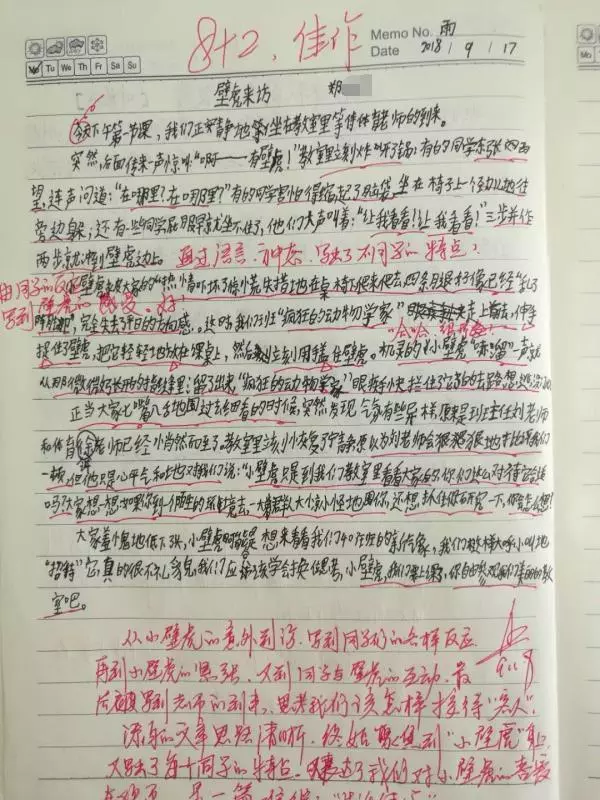 8+2、佳作
Memo No. 雨
Date 2018 / 9 / 17
Mo Tu We Th Fr Sa Su
壁虎来访 郑
今天下午第一节课，我们正安静地坐在教室里等待体育老师的到来。
突然，后面传来一声惊叫："啊——有壁虎！"教室里立刻炸开了锅：有的同学东张西
望，连声问道："在哪里？在哪里？"有的同学害怕得缩起了脑袋，坐在椅子上一个劲儿地往
旁边躲；还有一些同学屁股早就坐不住了，他们大声叫着："让我看看！让我看看！"三步并作
两步就冲到壁虎边上。通过语言、神态，写出了不同同学的特点！
由同学的反应
写到壁虎的感受。好！
小壁虎被大家的"热情"吓坏了，惊慌失措地在桌椅下爬来爬去，四条腿好像已经"乱了
完全失去了平日的方向感。这时，我们班"疯狂的动物学家"走上前去，伸手
捏住了壁虎，把它轻轻地放在课桌上，然后立刻用手盖住壁虎。机灵的小壁虎"哧溜"一声就
从那微微的手指缝里钻了出来，"疯狂的动物学家"眼疾手快拦住了它的去路
正当大家七嘴八舌地围过去看的时候，突然发现气氛有些异样，原来是班主任刘老师
和体育徐老师已经悄然而至了。教室里立刻恢复了宁静。原以为刘老师会狠狠地批评我们
一顿，但他只是心平气和地对我们说："小壁虎只是到我们教室里看看大家的，你们怎么对待它
吗？大家想一想，如果你到一个陌生的环境去，一大群人大惊小怪地围你，还想抓住你研究一下，你会怎么想？
大家羞愧地低下头，小壁虎可能是想来看看我们401班的新气象，我们这样大呼小叫地
"招待"它，真的很不礼貌。我们应该学会换位思考，小壁虎，我们要上课了，你自由参观我们美丽的教
室吧。
从小壁虎的意外到访，写到同学们的各样反应
再到小壁虎的紧张，又到同学与壁虎的互动，最
后写到老师的到来，思考我们该怎样接待"客人"。
添的文章思路清晰，始终围绕到"小壁虎"身上
又写出了每个同学的特点，表达了我们对小壁虎的喜爱
9.18